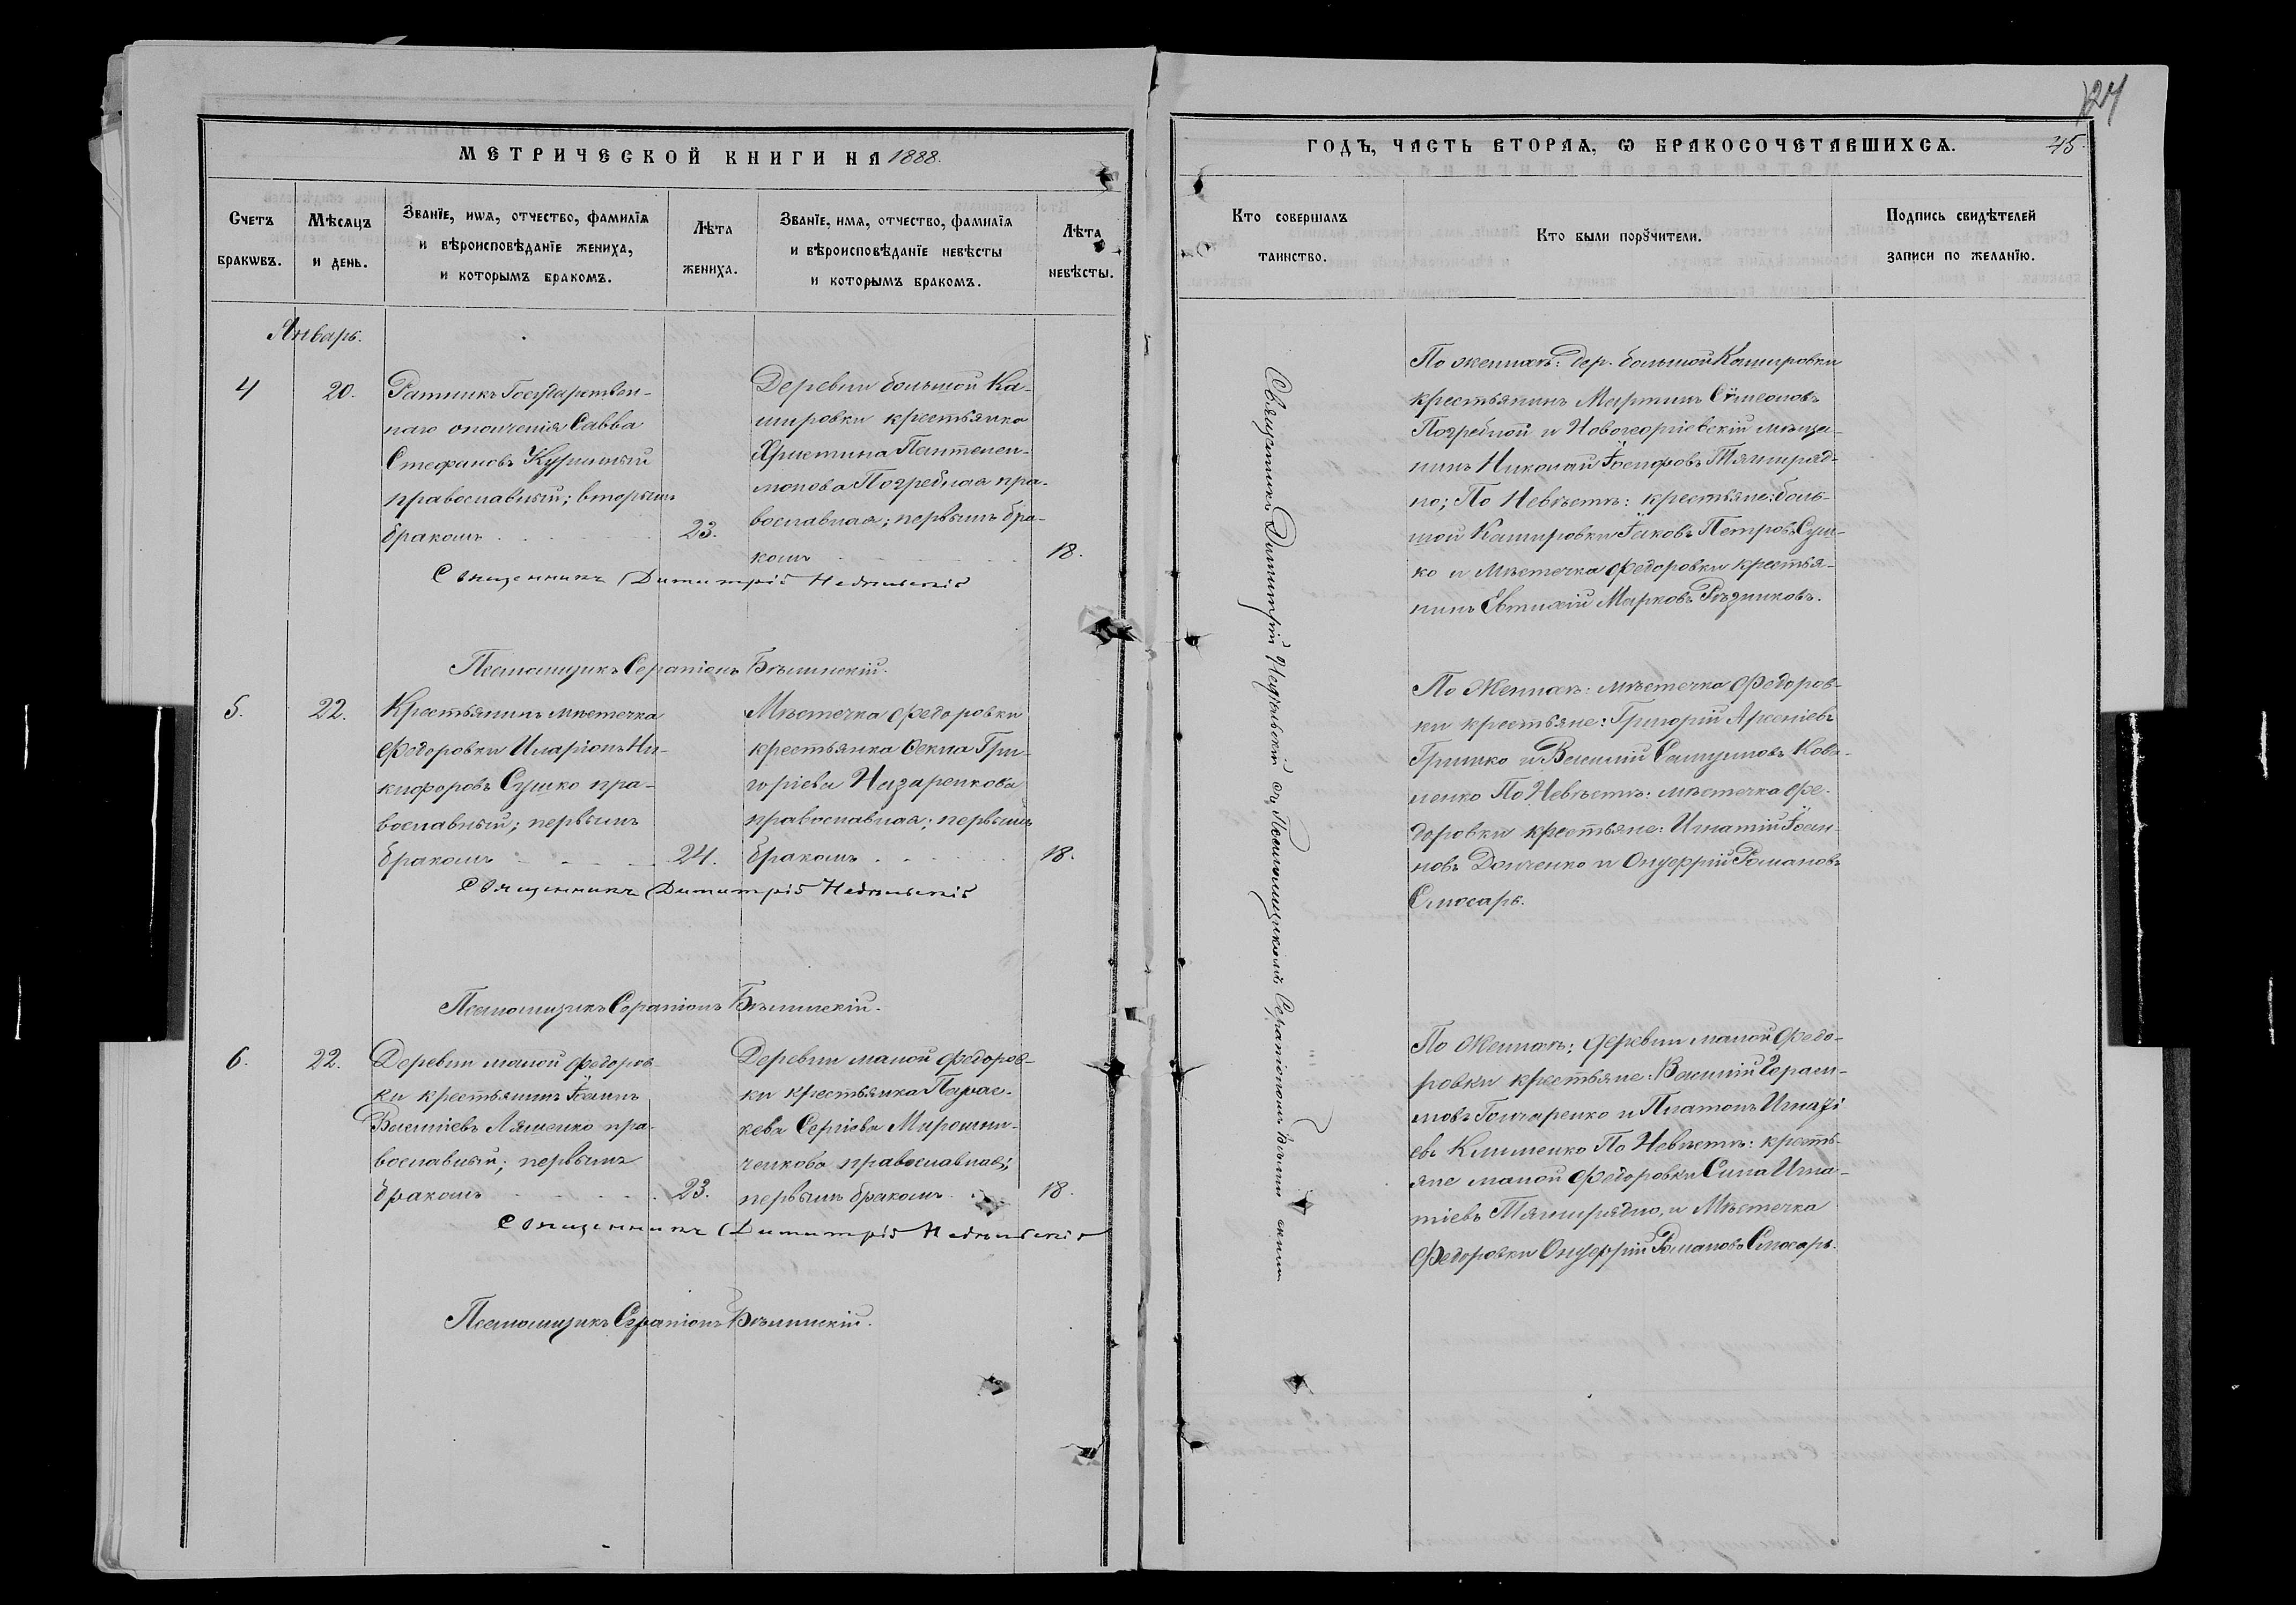 МЕТРИЧЕСКОЙ КНИГИ НА 1888.
Счетъ бракѡвъ.
Мѣсяцъ и день.
Званїе, имѧ, отчество, фамилїѧ
и вѣроисповѣданїе жениха,
и которымъ бракомъ.
Лѣта жениха.
Званїе, имѧ, отчество, фамилїѧ
и вѣроисповѣданїе невѣсты
и которымъ бракомъ.
Лѣта невѣсты.
Январь.
4
20.
Ратникъ Государствен-
наго ополченія Савва
Стефановъ
православный; вторымъ
бракомъ
23.
Деревни большой Ка-
шировки крестьянка
Христина Пантелеи-
монова Погребная пра-
вославная; первымъ бра-
комъ
18.
Священникъ Димитрій Недѣльскій
Псаломщикъ Серапіонъ Бѣлинскій.
5.
22.
Крестьянинъ мѣстечка
Федоровки Иларіонъ Ни-
кифоровъ Сушко пра-
вославный; первымъ
бракомъ
24.
Мѣстечка Федоровки
крестьянка Ѳекла Гри-
горіева Назаренкова
православная; первымъ
бракомъ
18.
Священникъ Димитрій Недѣльскій
Псаломщикъ Серапіонъ Бѣлинскій.
6.
22.
Деревни малой Федоров-
ки крестьянинъ Іоаннъ
Василіевъ Ляшенко пра-
вославный; первымъ
бракомъ
23.
Деревни малой Федоров-
ки крестьянка Парас-
кева Сергіева Мирошни-
ченкова православная;
первымъ бракомъ
18.
Священникъ Димитрій Недѣльскій
Псаломщикъ Серапіонъ Бѣлинскій.
124
ГОДЪ, ЧАСТЬ ВТОРАѦ, Ѡ БРАКОСОЧЕТАВШИХСѦ.
45.
Кто совершалъ
таинство.
Кто были порꙋчители.
Подпись свидѣтелей
записи по желанїю.
Священникъ Димитрій Недѣльскій съ Псаломщикомъ Серапіономъ Бѣлинскимъ
По женихѣ: дер. большой Кашировки
крестьянинъ Мартинъ Сѵмеоновъ
Погребной и Новогеоргіевскій мѣща-
нинъ Николай Іосифовъ Тямиряд-
но; По Невѣстѣ: крестьяне: боль-
шой Кашировки Іаковъ Петровъ Суш-
ко и мѣстечка Федоровки крестья-
нинъ Евтихій Марковъ Рѣзниковъ.
По Женихѣ: мѣстечка Федоров-
ки крестьяне: Григорій Арсеніевъ
Гришко и Василій Самуиловъ Кова-
ленко По Невѣстѣ: мѣстечка Фе-
доровки крестьяне: Игнатій Іоан-
новъ Донченко и Онуфрій Романовъ
Слюсарь.
По Женихѣ: деревни малой Федо-
ровки крестьяне: Василій Гераси-
мовъ Гончаренко и Платонъ Игнатi
евъ Клименко По Невѣстѣ: кресть-
яне малой Федоровки Сила Игна-
тіевъ Тямирядно, и Мѣстечка
Федоровки Онуфрій Романовъ Слюсарь.